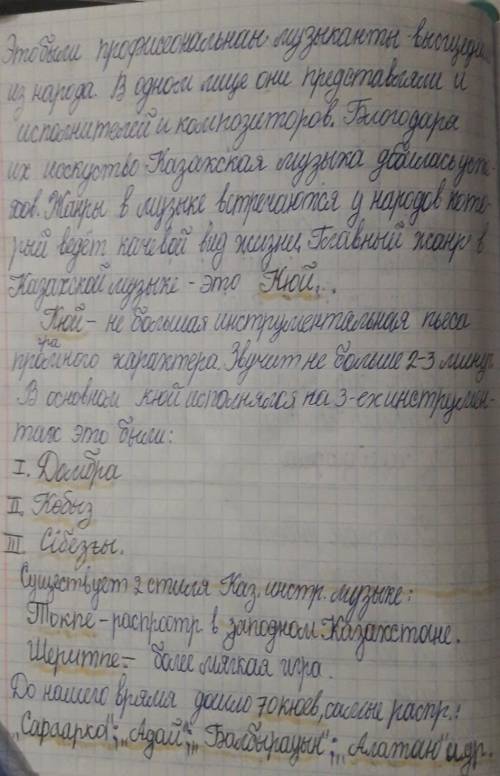 Это были профессональные музыканты вышедш
из народа. В одном лице они представляли и
исполнителей и композиторов. Благодаря
их искуство Казахская музыка добилась успе-
хов. Жанры в музыке встречаются у народов кото-
рый ведёт качевой вид жизни. Главный жанр в
Казахской музыке - это Кюй.
Кюй - не большая инструментальная пьеса
програмного характера. Звучит не больше 2-3 минут
В основном кюй исполнялся на 3-ех инструмен-
тах это были:
I. Домбра
II. Кобыз
III. Сібезғы.
Существует 2 стиля Каз. инстр. музыке:
Токпе - распростр в западном Казахстане.
Шертпе - более мягкая игра.
До нашего врямя дошло 70 кюев, самые распр.:
„Сарыарка"; „Адай"; „Балбырауын"; „Алатау" и др.